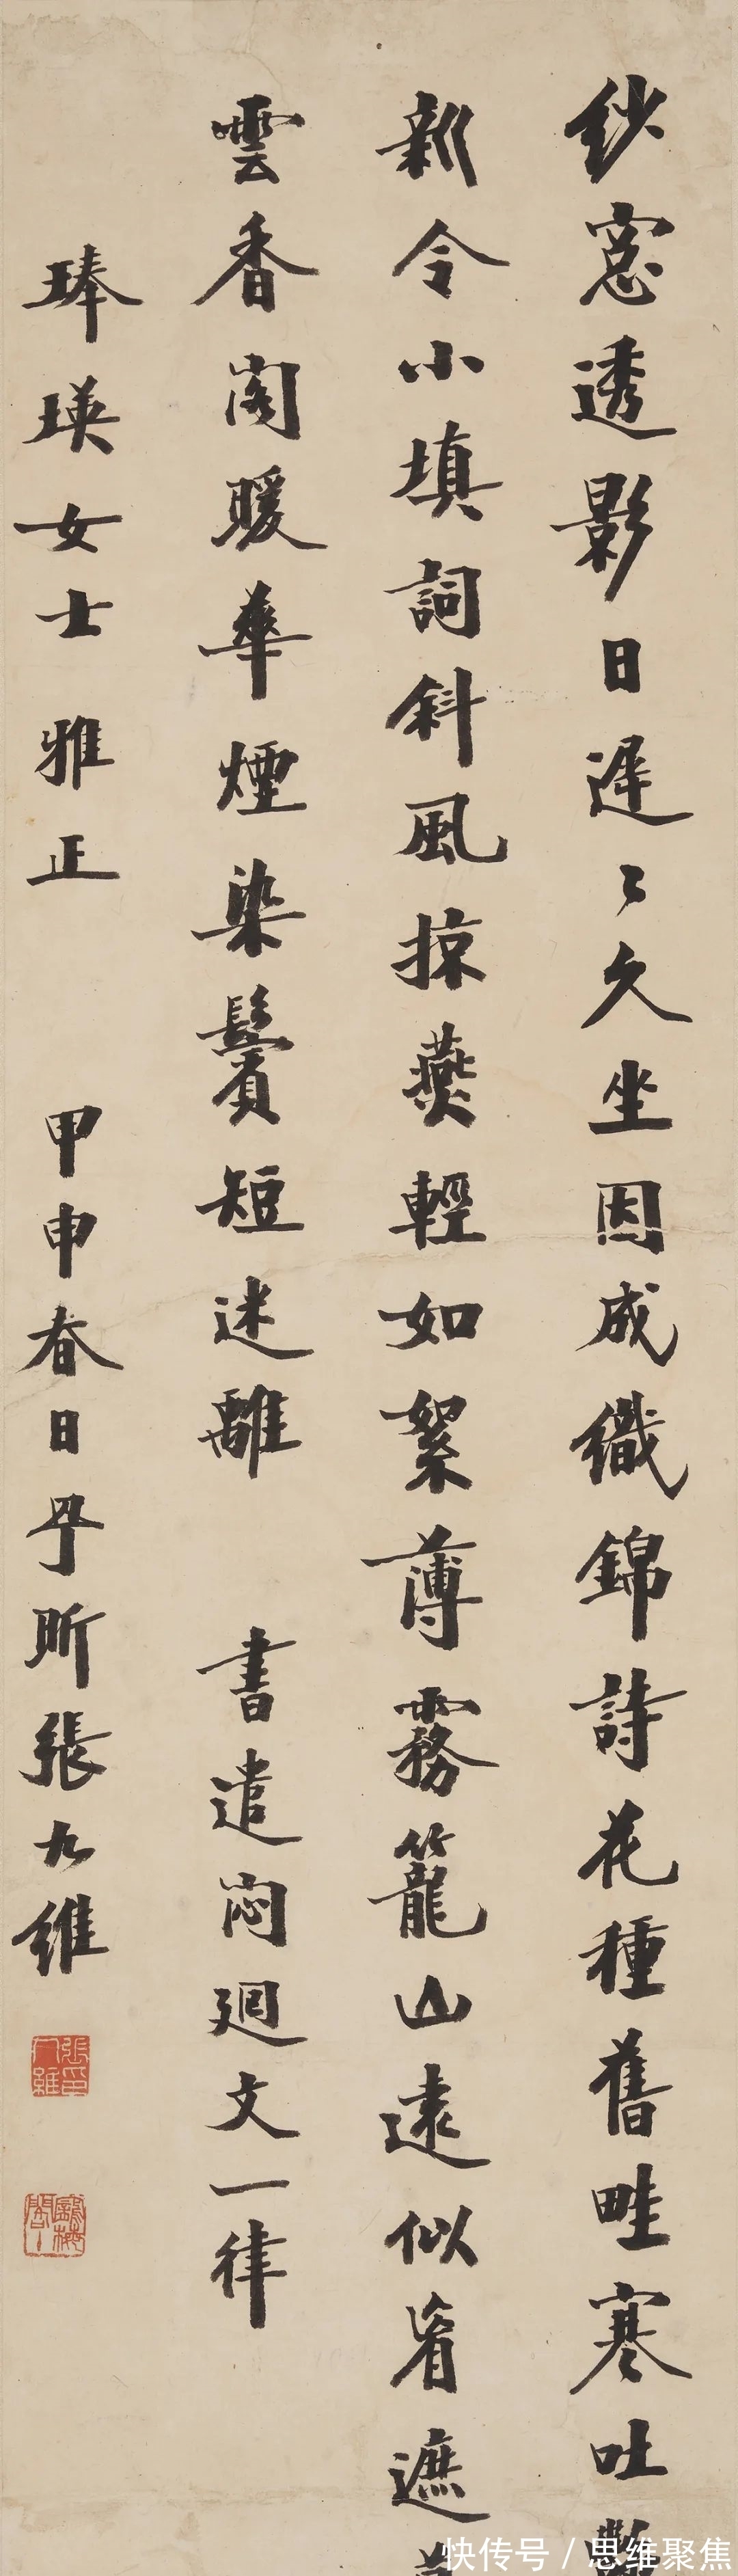 紗窓透影日遲〻久坐因成織錦詩花種舊畦寒吐
新令小填詞斜風掠燕輕如絮薄霧籠山遠似眉遮
雲香閣暖華煙染鬢短迷離 書遣悶廻文一律
琫瑛女士雅正 甲申春日丹昕張九維
快传号 / 思维聚焦